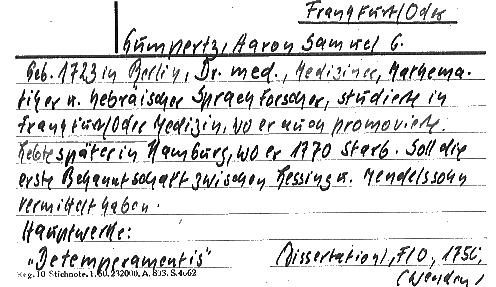 Frankfurt/Oder
Gumpertz, Aaron Samuel G.
Geb. 1723 in Berlin, Dr. med., Mediziner, Mathema-
tiker u. hebräischer Sprachforscher, studierte in
Frankfurt/Oder Medizin, wo er auch promovierte.
Lebte später in Hamburg, wo er 1770 starb. Soll die
erste Bekanntschaft zwischen Lessing u. Mendelssohn
vermittelt haben.
Hauptwerke:
"De temperamentis" (Dissertation), F/O, 1751,
Reg. 10 Stichnote. 1. 60. 232000. A. 803. S. 4662